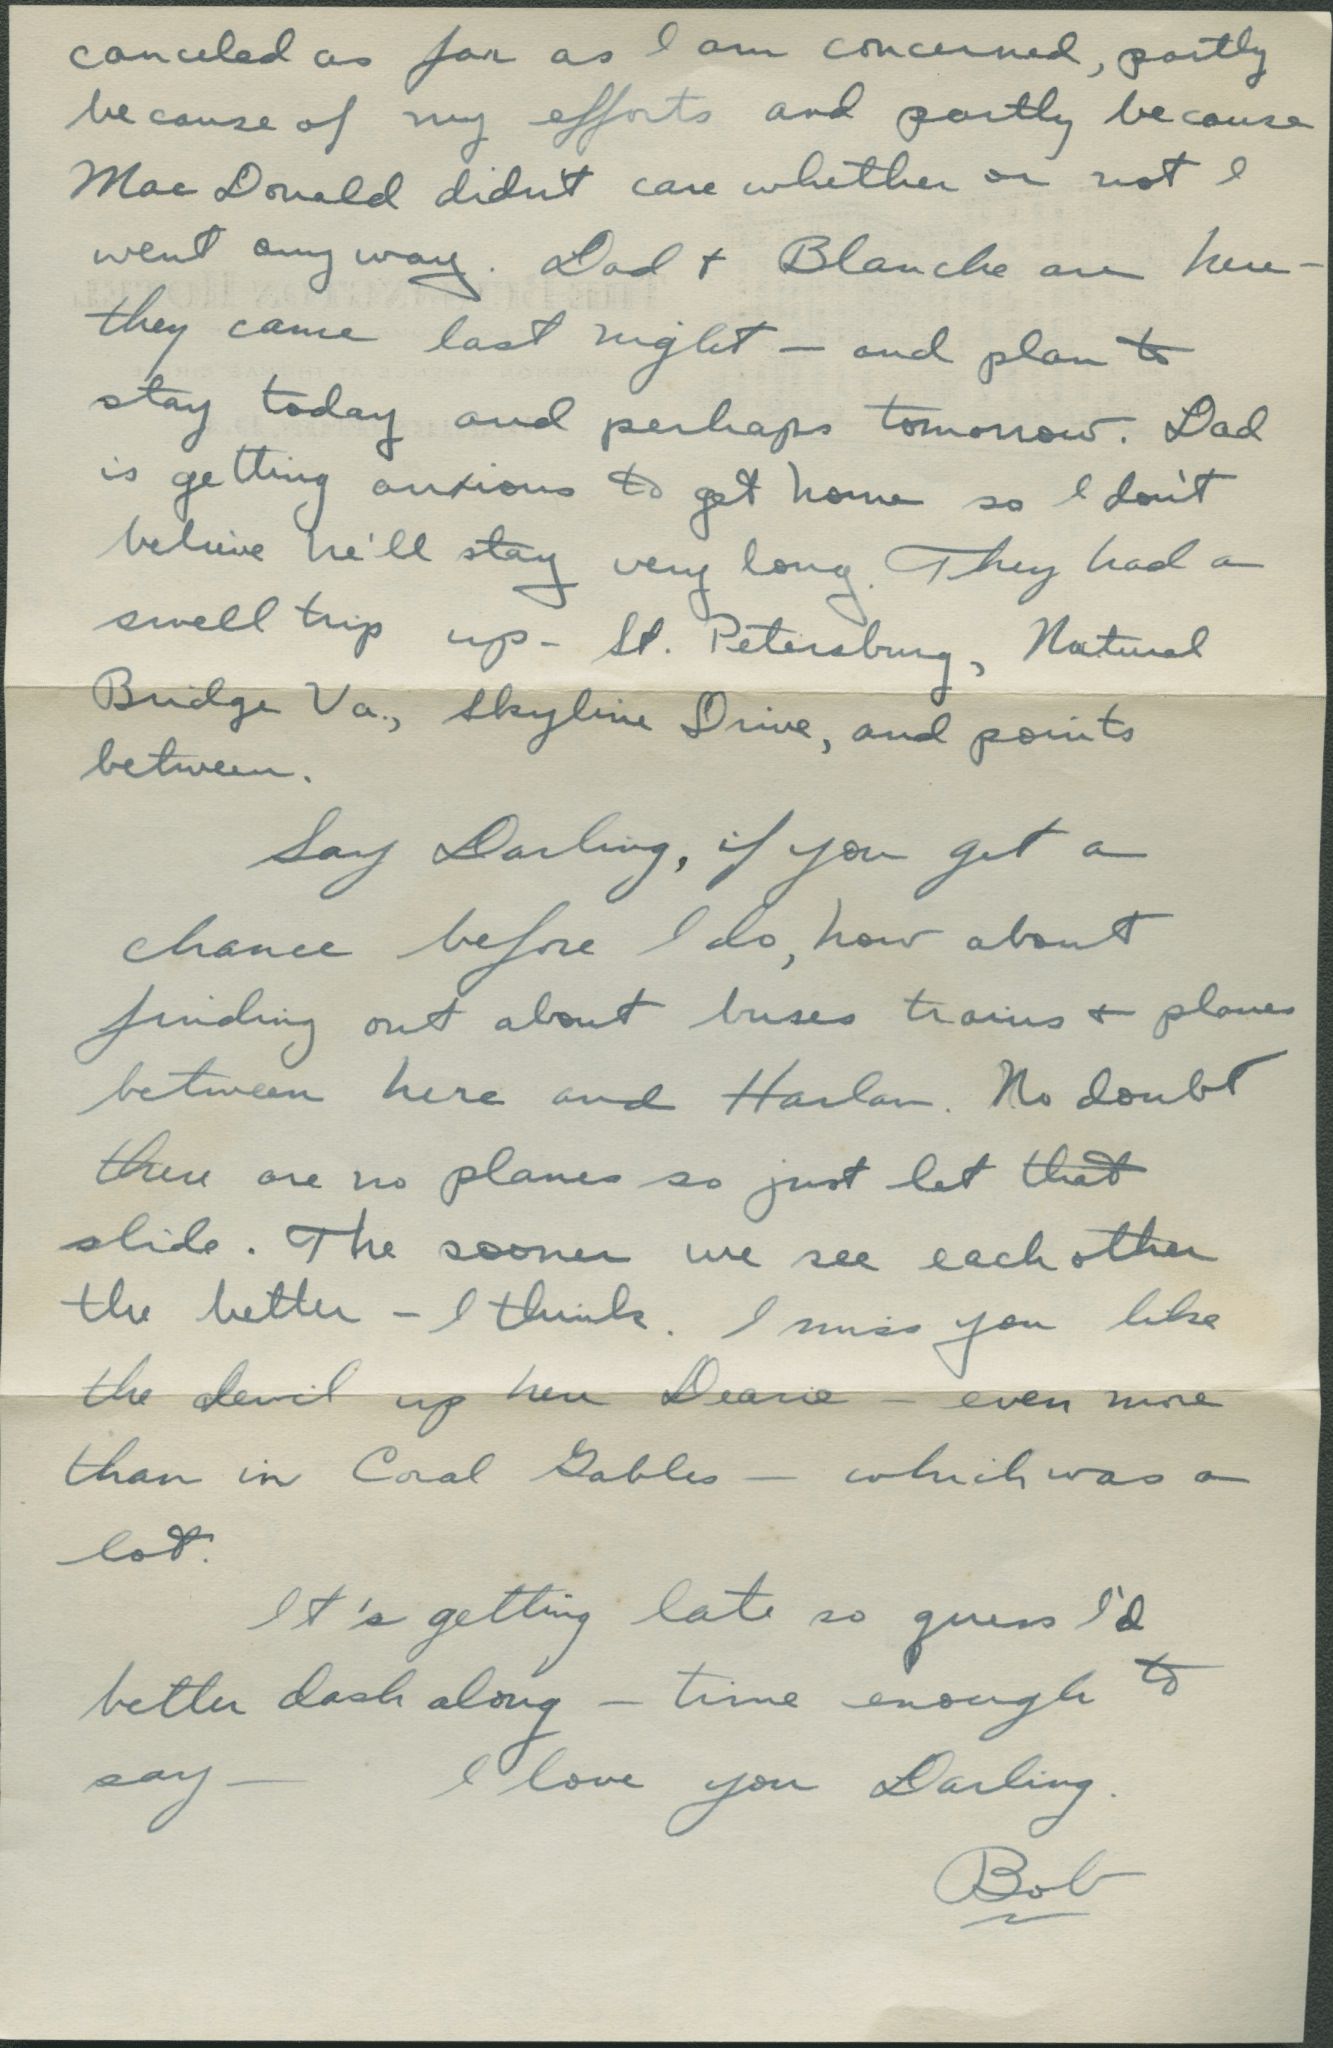 canceled as far as I am concerned, partly
because of my efforts and partly because
MacDonald didn't care whether or not I
went anyway. Dad + Blanche are here –
they came last night – and plan to
stay today and perhaps tomorrow. Dad
is getting anxious to get home so I don't
believe he'll stay very long. They had a
swell trip up – St. Petersburg, Natural
Bridge Va., Skyline Drive, and points
between.
Say Darling, if you get a
chance before I do, how about
finding out about buses trains + planes
between here and Harlan. No doubt
there are no planes so just let that
slide. The sooner we see each other
the better – I think. I miss you like
the devil up here Dearie – even more
than in Coral Gables – which was a
lot.
It's getting late so guess I'd
better dash along – time enough to
say – I love you Darling.
Bob